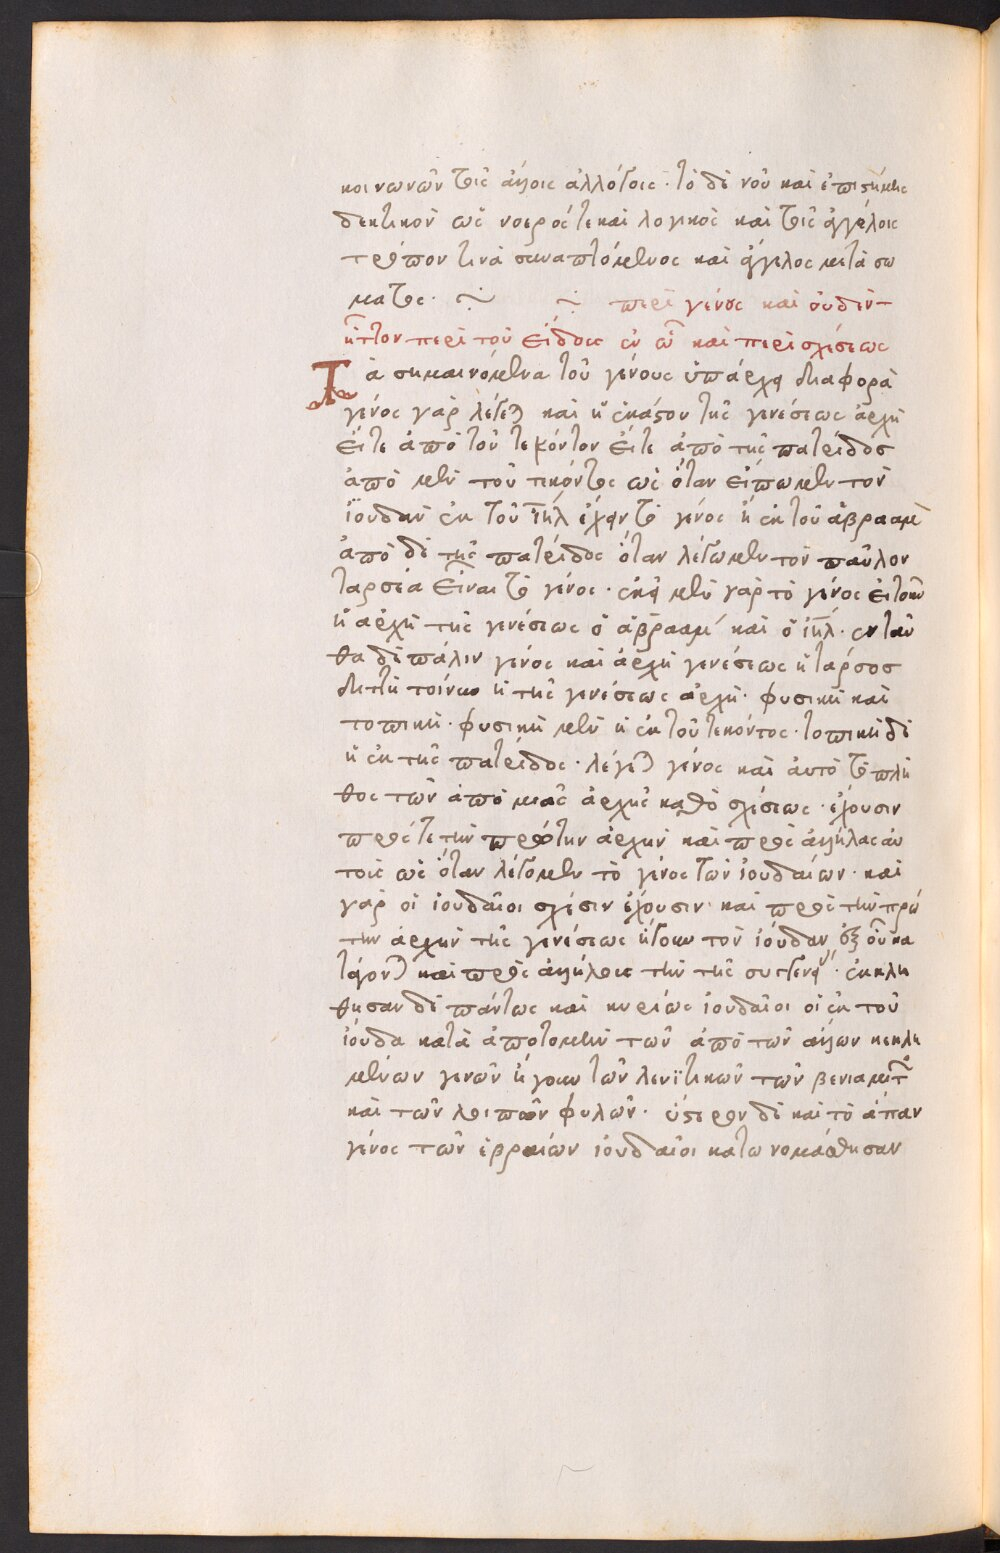 κοινωνῶν τοῖς ἀλόγοις ἀλλότοις· τὸ δὲ νοῦ καὶ ἐπιστήμης
δεκτικὸν ὡς νοερός τε καὶ λογικὸς καὶ τοῖς ἀγγέλοις
τρόπον τινὰ συναπτόμενος καὶ ἄγγελος μετὰ σώ
ματος· περὶ γένους καὶ οὐδὲν
ἧττον περὶ τοῦ εἴδους ἐν ᾧ καὶ περὶ σχέσεως
Τὰ σημαινόμενα τοῦ γένους ὑπάρχει διαφορὰ
γένος γὰρ λέγεται καὶ ἡ ἑκάστου τῆς γενέσεως ἀρχὴ
εἴτε ἀπὸ τοῦ τεκόντος εἴτε ἀπὸ τῆς πατρίδος
ἀπὸ μὲν τοῦ τεκόντος ὡς ὅταν εἴπωμεν τὸν
ἰούδαν ἐκ τοῦ ἰηλ ἔχειν τὸ γένος ἢ ἐκ τοῦ ἀβραάμ
ἀπὸ δὲ τῆς πατρίδος ὅταν λέγωμεν τὸν παῦλον
ταρσέα εἶναι τὸ γένος· ἐκεῖ μὲν γὰρ τὸ γένος εἴτουν
ἡ ἀρχὴ τῆς γενέσεως ὁ ἀβραάμ καὶ ὁ ἰηλ· ἐνταῦ
θα δὲ πάλιν γένος καὶ ἀρχὴ γενέσεως ἡ ταρσός
διττὴ τοίνυν ἡ τῆς γενέσεως ἀρχή· φυσικὴ καὶ
τοπική· φυσικὴ μὲν ἡ ἐκ τοῦ τεκόντος· τοπικὴ δὲ
ἡ ἐκ τῆς πατρίδος· λέγεται γένος καὶ αὐτὸ τὸ πλῆ
θος τῶν ἀπὸ μιᾶς ἀρχῆς καθὸ σχέσεως· ἔχουσιν
πρός τε τὴν πρώτην ἀρχὴν καὶ πρὸς ἀλλήλας αὐ
τοῖς ὡς ὅταν λέγομεν τὸ γένος τῶν ἰουδαίων· καὶ
γὰρ οἱ ἰουδαῖοι σχέσιν ἔχουσιν καὶ πρὸς τὴν πρώ
την ἀρχὴν τῆς γενέσεως ἤγουν τὸν ἰούδαν, ἐξ οὗ κα
τάγονται καὶ πρὸς ἀλλήλους τὴν τῆς συγγενείας· ἐκλή
θησαν δὲ πάντως καὶ κυρίως ἰουδαῖοι οἱ ἐκ τοῦ
ἰούδα κατὰ ἀποτομὴν τῶν ἀπὸ τῶν ἄλλων κεκλη
μένων γενῶν ἤγουν τῶν λευϊτικῶν τῶν βενιαμιτῶν
καὶ τῶν λοιπῶν φυλῶν· ὕστερον δὲ καὶ τὸ ἅπαν
γένος τῶν ἑβραίων ἰουδαῖοι κατωνομάσθησαν